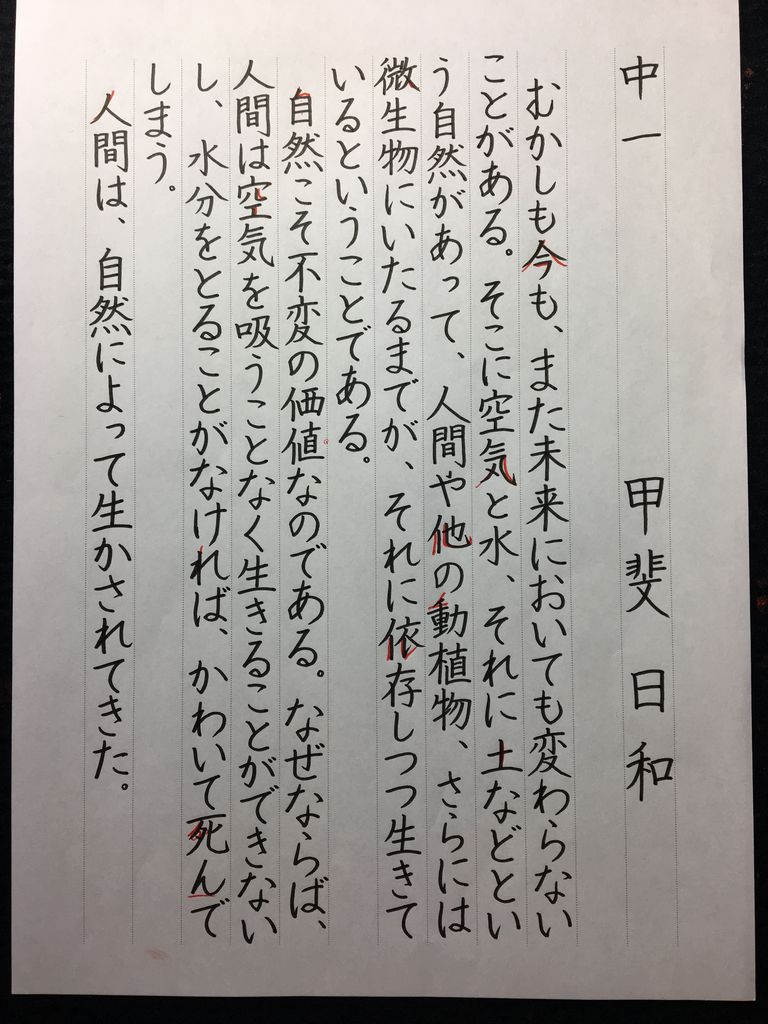 中一 甲斐日和
むかしも今も、また未来においても変わらない
ことがある。そこに空気と水、それに土などとい
う自然があって、人間や他の動植物、さらには
微生物にいたるまでが、それに依存しつつ生きて
いるということである。
自然こそ不変の価値なのである。なぜならば、
人間は空気を吸うことなく生きることができない
し、水分をとることがなければ、かわいて死んで
しまう。
人間は、自然によって生かされてきた。